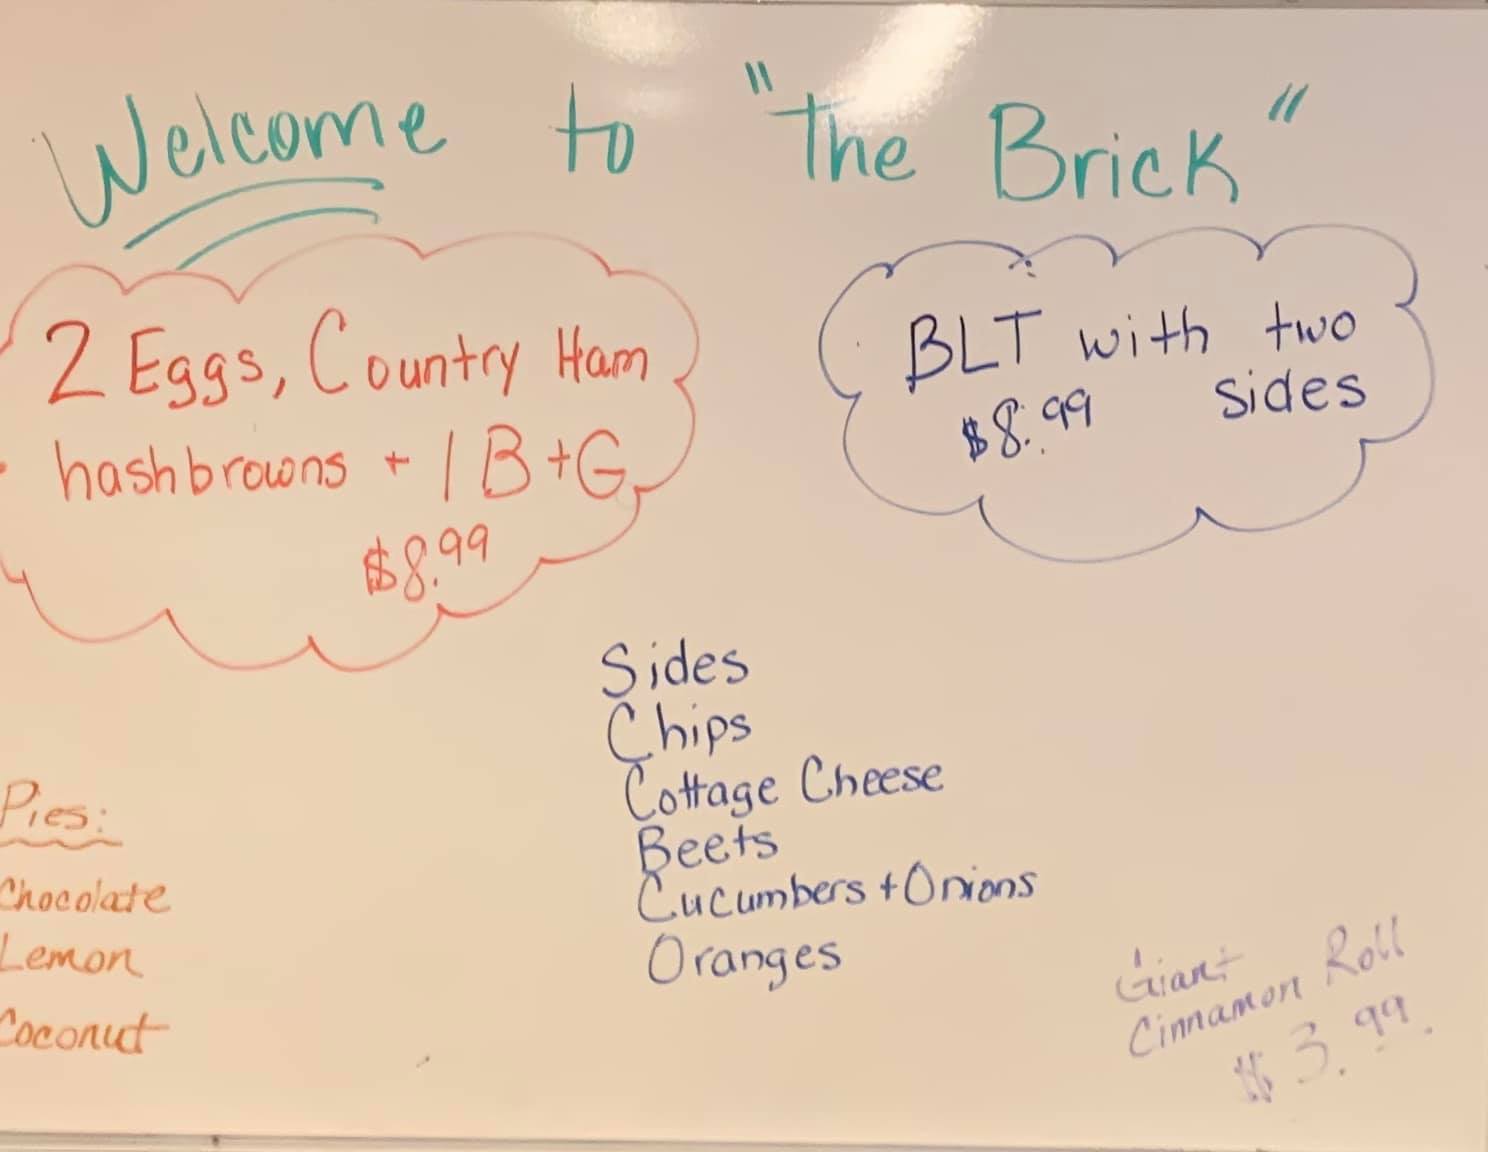 Welcome to "The Brick"
2 Eggs, Country Ham
hashbrowns + 1 B+G
$8.99
BLT with two
$8.99 sides
Sides
Chips
Cottage Cheese
Beets
Cucumbers + Onions
Oranges
Pies:
Chocolate
Lemon
Coconut
Giant
Cinnamon Roll
$3.99